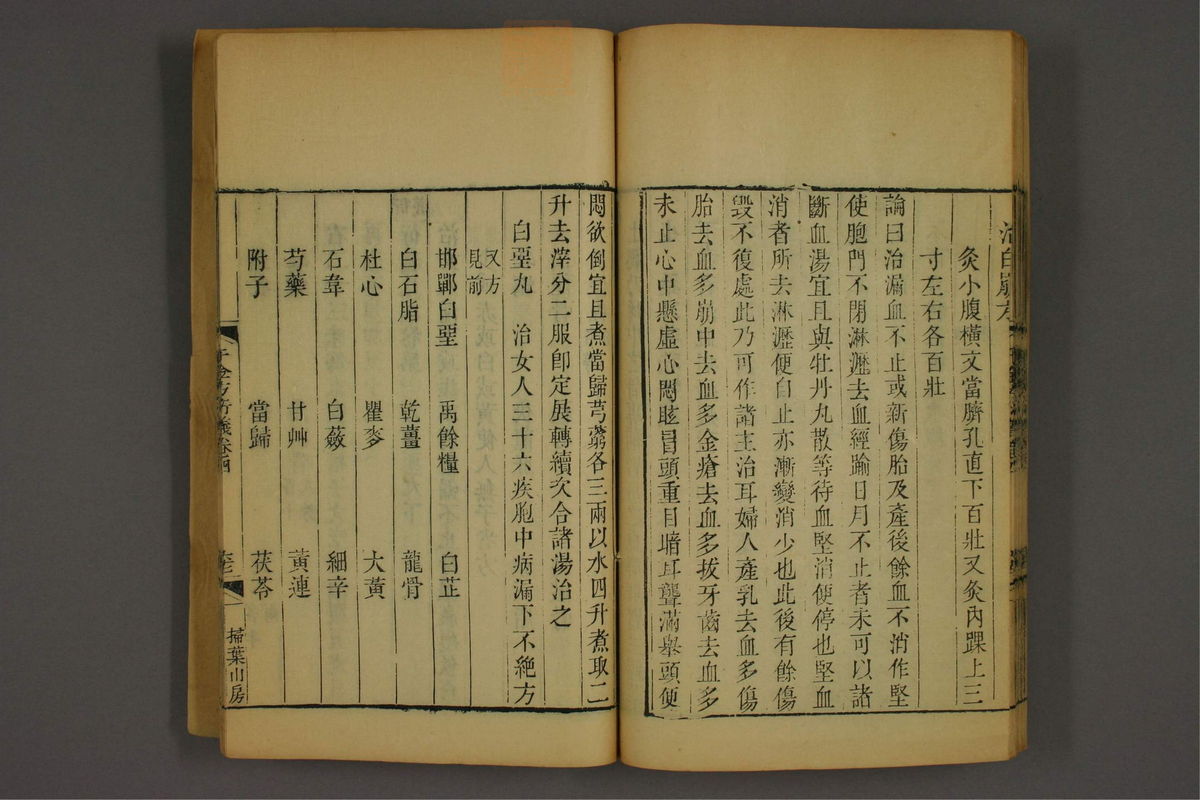 治白崩方
灸小腹橫文當臍孔直下百壯又灸內踝上三
寸左右各百壯
論曰治漏血不止或新傷胎及產後餘血不消作堅
使胞門不閉淋瀝去血經踰日月不止者未可以諸
斷血湯宜且與牡丹丸散等待血堅消便停也堅血
消者所去淋瀝便自止亦漸變消少也此後有餘傷
毀不復處此乃可作諸主治耳婦人產乳去血多傷
胎去血多崩中去血多金瘡去血多拔牙齒去血多
未止心中懸虛心悶眩冒頭重目暗耳聾滿舉頭便
悶欲倒宜且煮當歸芎藭各三兩以水四升煮取二
升去滓分二服卽定展轉續次合諸湯治之
白堊丸　治女人三十六疾胞中病漏下不絶方
又方
見前
邯鄲白堊　禹餘糧　白芷
白石脂　乾薑　龍骨
杜心　瞿麥　大黃
石韋　白蘞　細辛
芍藥　甘艸　黃連
附子　當歸　茯苓
千金方衍義卷四
掃葉山房